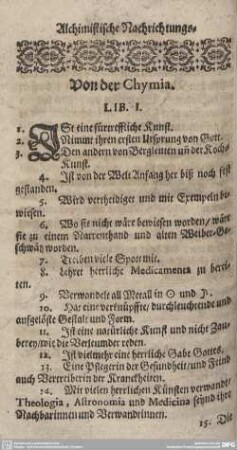 Alchimistische Nachrichtungs-
Von der Chymia.
LIB. I.
1. ISt eine fürtreffliche Kunst.
2. Nimmt ihren ersten Ursprung von Gott.
3. Den andern von Bergleuten uñ der Koch-
Kunst.
4. Ist von der Welt Anfang her biß noch fest
gestanden.
5. Wird vertheidiget und mit Exempeln be-
wiesen.
6. Wo sie nicht wäre bewiesen worden / wäre
sie zu einem Narrenthand und alten Weiber-Ge-
schwätz worden.
7. Treiben viele Spott mit.
8. Lehret herrliche Medicamenta zu berei-
ten.
9. Verwandelt all Metall in ☉ und
10. Hat eine verknüpffte / durchleuchtende und
auffgelöste Gestalt und Form.
11. Ist eine natürliche Kunst und nicht Zau-
berey / wie die Verleumder reden.
12. Ist vielmehr eine herrliche Gabe Gottes.
13. Eine Pflegerin der Gesundheit / und Feind
auch Vertreiberin der Kranckheiten.
14. Mit vielen herrlichen Künsten verwandt /
Theologia, Astronomia und Medicina seynd ihre
Nachbarinnen und Verwandtinnen.
15. Die